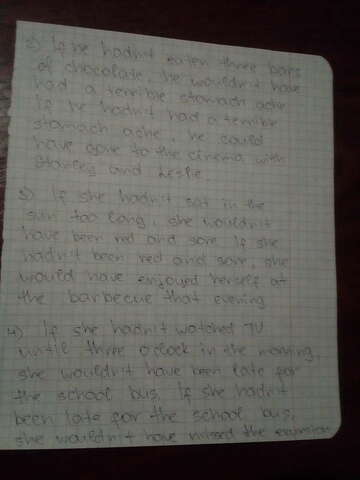 2) If he hadn't eaten three bars
of chocolate, he wouldn't have
had a terrible stomach ache
If he hadn't had a terrible
stomach ache, he could
have gone to the cinema with
Stanley and Leslie
3) If she hadn't sat in the
sun too long, she wouldn't
have been red and sore If she
hadn't been red and sore, she
would have enjoyed herself at
the barbecue that evening
4) If she hadn't watched TV
until three o'clock in the morning,
she wouldn't have been late for
the school bus. If she hadn't
been late for the school bus,
she wouldn't have missed the excursion